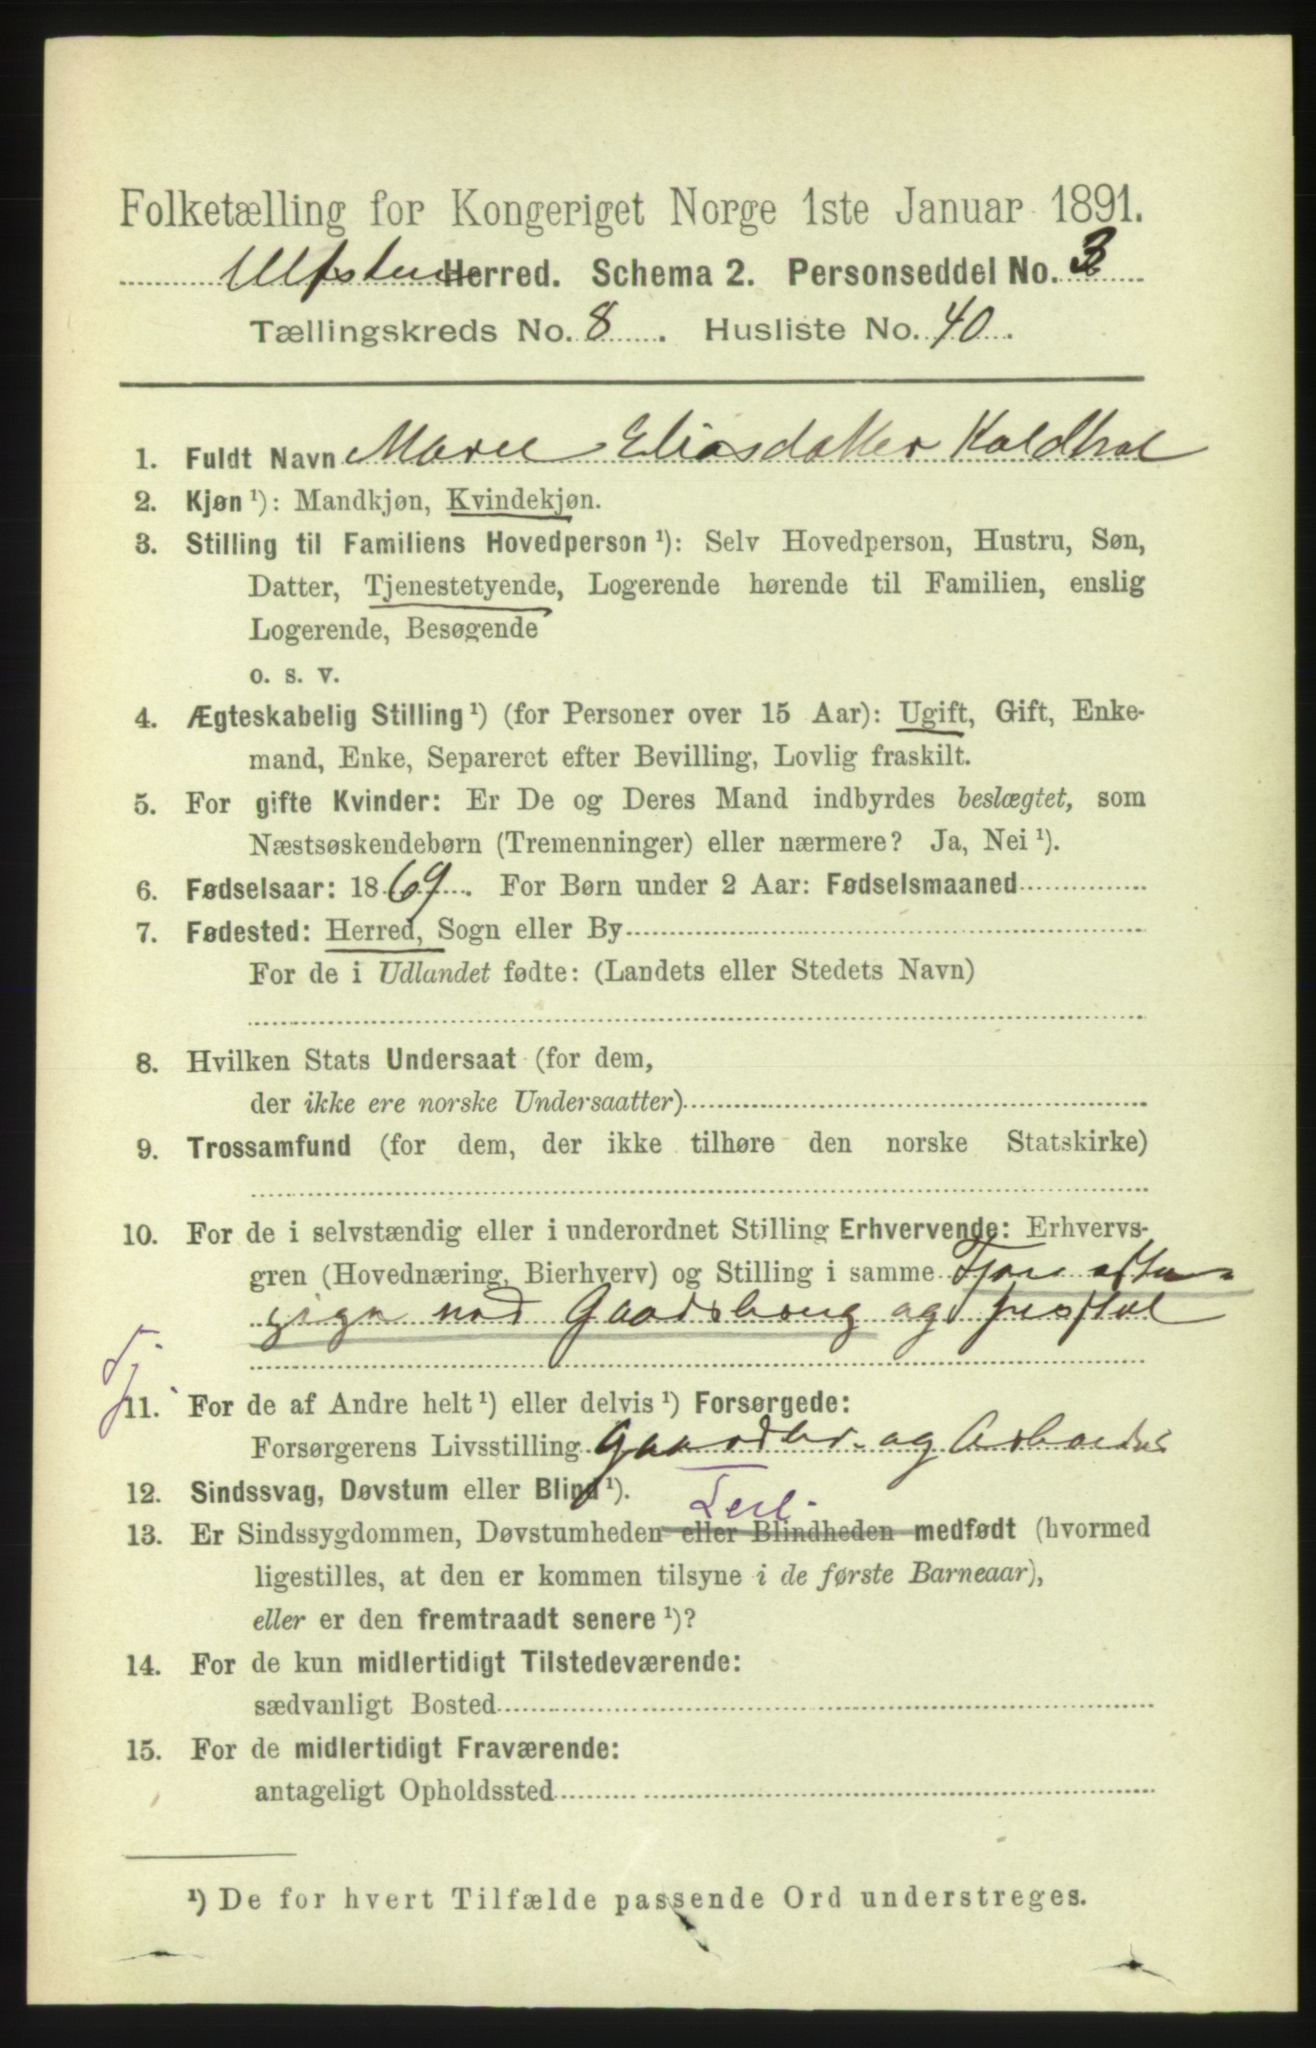 Folketælling for Kongeriget Norge 1ste Januar 1891.
Ulfsten Herred. Schema 2. Personseddel No. 3
Tællingskreds No. 8. Husliste No. 40.
1. Fuldt Navn Maree Eliasdatter Koldhol
2. Kjøn ¹): Mandkjøn, Kvindekjøn.
3. Stilling til Familiens Hovedperson ¹): Selv Hovedperson, Hustru, Søn,
Datter, Tjenestetyende, Logerende hørende til Familien, enslig
Logerende, Besøgende
o. s. v.
4. Ægteskabelig Stilling ¹) (for Personer over 15 Aar): Ugift, Gift, Enke-
mand, Enke, Separeret efter Bevilling, Lovlig fraskilt.
5. For gifte Kvinder: Er De og Deres Mand indbyrdes beslægtet, som
Næstsøskendebørn (Tremenninger) eller nærmere? Ja, Nei ¹).
6. Fødselsaar: 1869. For Børn under 2 Aar: Fødselsmaaned
7. Fødested: Herred, Sogn eller By
For de i Udlandet fødte: (Landets eller Stedets Navn)
8. Hvilken Stats Undersaat (for dem,
der ikke ere norske Undersaatter)
9. Trossamfund (for dem, der ikke tilhøre den norske Statskirke)
10. For de i selvstændig eller i underordnet Stilling Erhvervende: Erhvervs-
gren (Hovednæring, Bierhverv) og Stilling i samme
Gaardsbrug og
Tj.
11. For de af Andre helt ¹) eller delvis ¹) Forsørgede:
Forsørgerens Livsstilling Gaardbr. og Arbeider
12. Sindssvag, Døvstum eller Blind ¹).
13. Er Sindssygdommen, Døvstumheden eller Blindheden medfødt (hvormed
ligestilles, at den er kommen tilsyne i de første Barneaar),
eller er den fremtraadt senere ¹)?
14. For de kun midlertidigt Tilstedeværende:
sædvanligt Bosted
15. For de midlertidigt Fraværende:
antageligt Opholdssted
¹) De for hvert Tilfælde passende Ord understreges.